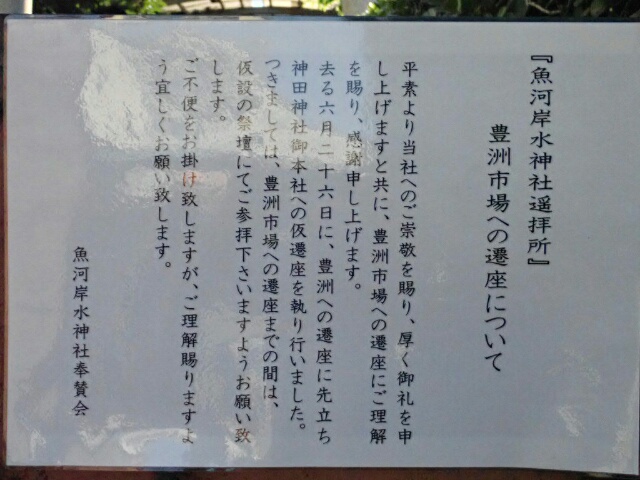 『魚河岸水神社遥拝所』
豊洲市場への遷座について
平素より当社へのご崇敬を賜り、厚く御礼を申
し上げますと共に、豊洲市場への遷座にご理解
を賜り、感謝申し上げます。
去る六月二十六日に、豊洲への遷座に先立ち
神田神社御本社への仮遷座を執り行いました。
つきましては、豊洲市場への遷座までの間は、
仮設の祭壇にてご参拝下さいますようお願い致
します。
ご不便をお掛け致しますが、ご理解賜りますよ
う宜しくお願い致します。
魚河岸水神社奉賛会